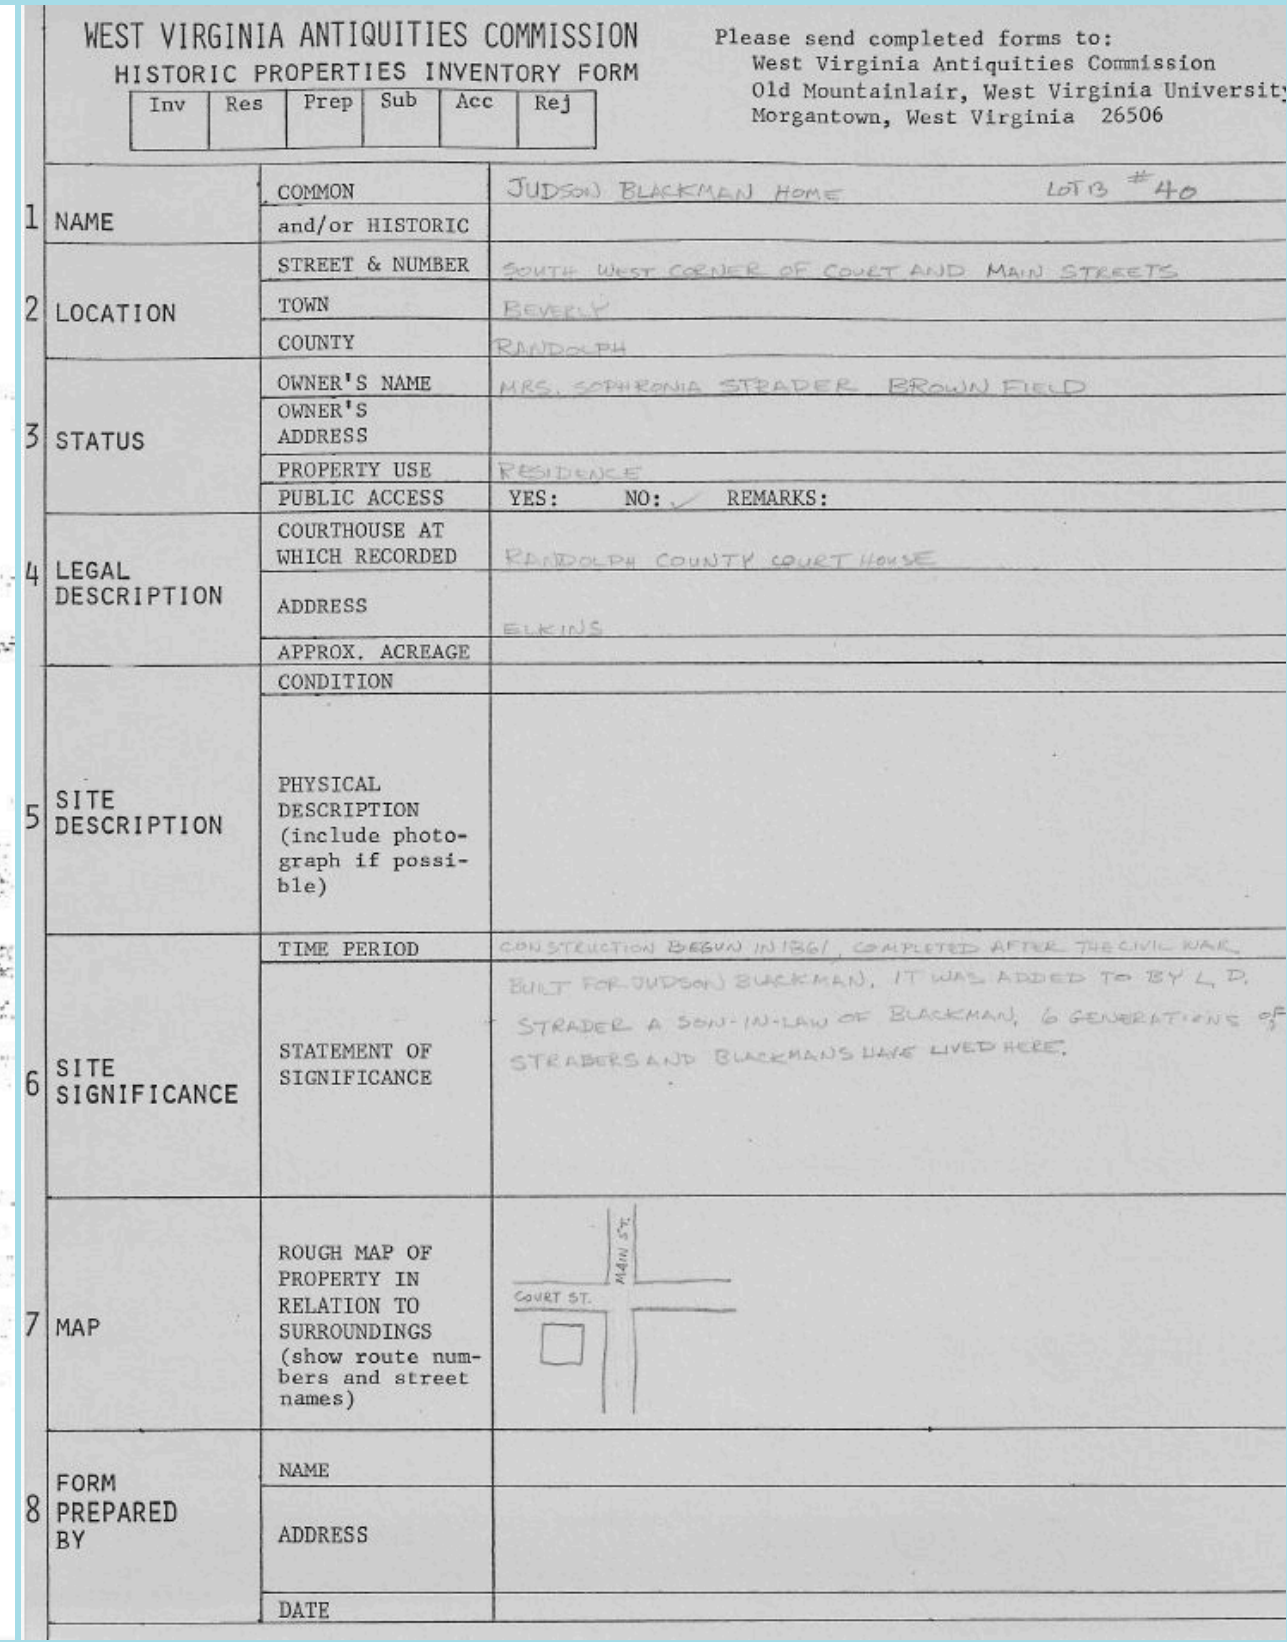 WEST VIRGINIA ANTIQUITIES COMMISSION
HISTORIC PROPERTIES INVENTORY FORM
Inv Res Prep Sub Acc Rej
Please send completed forms to:
West Virginia Antiquities Commission
Old Mountainlair, West Virginia University
Morgantown, West Virginia 26506
1 NAME
COMMON JUDSON BLACKMAN HOME LOT 13 #40
and/or HISTORIC
2 LOCATION
STREET & NUMBER SOUTH WEST CORNER OF COURT AND MAIN STREETS
TOWN BEVERLY
COUNTY RANDOLPH
3 STATUS
OWNER'S NAME MRS. SOPHRONIA STRADER BROWNFIELD
OWNER'S
ADDRESS
PROPERTY USE RESIDENCE
PUBLIC ACCESS YES: NO: ✓ REMARKS:
4 LEGAL
DESCRIPTION
COURTHOUSE AT
WHICH RECORDED RANDOLPH COUNTY COURT HOUSE
ADDRESS
ELKINS
APPROX. ACREAGE
5 SITE
DESCRIPTION
CONDITION
PHYSICAL
DESCRIPTION
(include photo-
graph if possi-
ble)
6 SITE
SIGNIFICANCE
TIME PERIOD CONSTRUCTION BEGUN IN 1861, COMPLETED AFTER THE CIVIL WAR
STATEMENT OF
SIGNIFICANCE
BUILT FOR JUDSON BLACKMAN. IT WAS ADDED TO BY L. D.
STRADER A SON-IN-LAW OF BLACKMAN. 6 GENERATIONS OF
STRADERS AND BLACKMANS HAVE LIVED HERE.
7 MAP
ROUGH MAP OF
PROPERTY IN
RELATION TO
SURROUNDINGS
(show route num-
bers and street
names)
MAIN ST.
COURT ST.
8 FORM
PREPARED
BY
NAME
ADDRESS
DATE